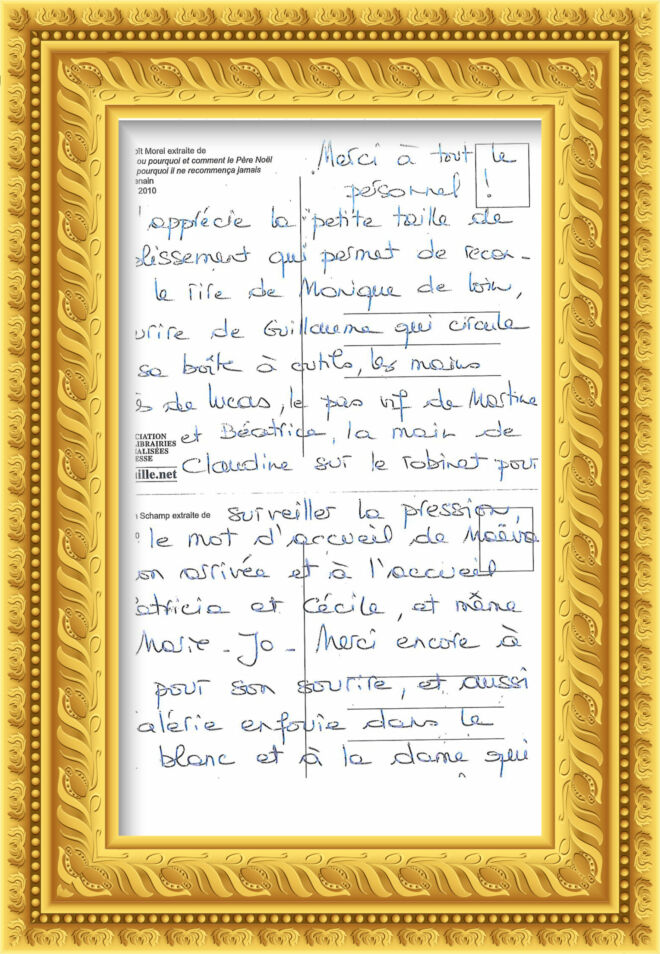 oît Morel extraite de
ou pourquoi et comment le Père Noël
pourquoi il ne recommença jamais
enain
2010
Merci à tout le
personnel !
'apprécie la petite taille de
blissement qui permet de recon-
le rire de Monique de loin,
urire de Guillaume qui circule
sa boîte à outils, les mains
s de Lucas, le pas vif de Martine
et Béatrice, la main de
CIATION
LIBRAIRIES
IALISÉES
ESSE
aille.net
Claudine sur le robinet pour
surveiller la pression,
Schamp extraite de
le mot d'accueil de Maëva
on arrivée et à l'accueil
atricia et Cécile, et même
Marie-Jo - Merci encore à
pour son sourire, et aussi
alérie enfouie dans le
blanc et à la dame qui